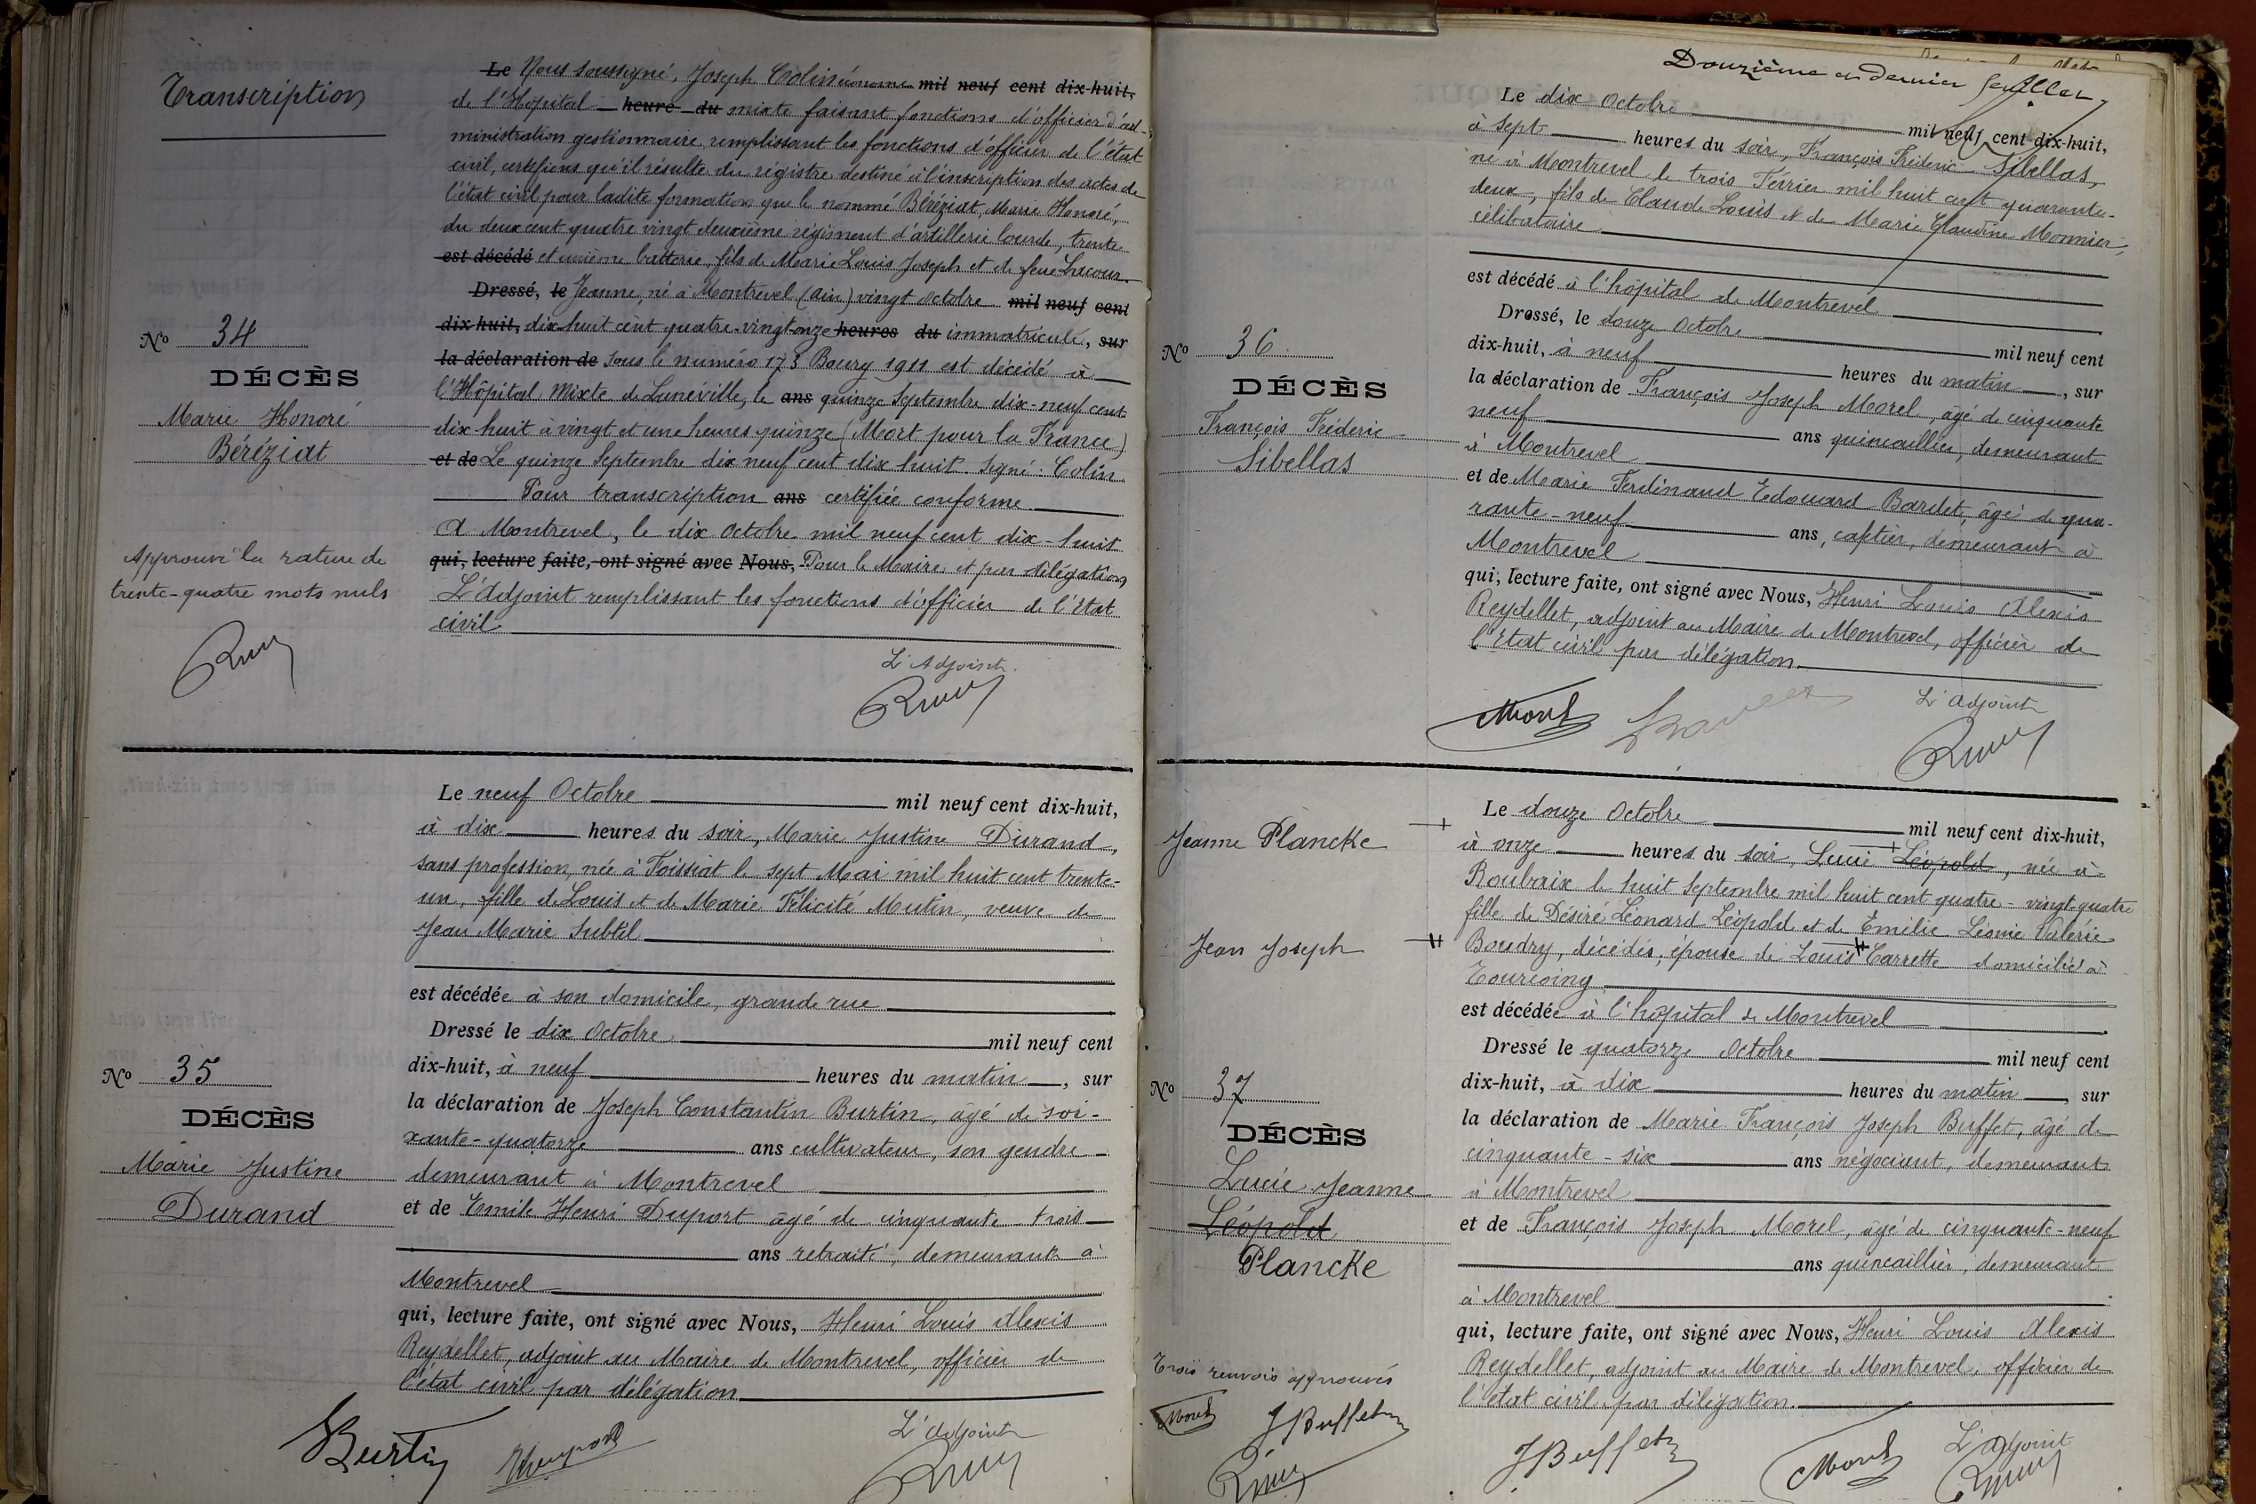 Transcription
Le Nous soussigné, Joseph Colin économe mil neuf cent dix-huit,
de l'Hôpital heure du mixte faisant fonctions d'officier d'ad-
ministration gestionnaire, remplissant les fonctions d'officier de l'état
civil, certifions qu'il résulte du registre destiné à l'inscription des actes de
l'état civil pour ladite formation que le nommé Béréziat, Marie Honoré,
du deux cent quatre vingt deuxième régiment d'artillerie lourde, trente
est décédé et unième batterie, fils de Marie Louis Joseph et de feue Lacour
Dressé, le Jeanne, né à Montrevel (Ain) vingt octobre mil neuf cent
dix-huit, dix-huit cent quatre-vingt-onze heures du immatriculé, sur
la déclaration de sous le numéro 173 Bourg 1911 est décédé à
l'Hôpital Mixte de Lunéville, le ans quinze Septembre dix-neuf cent
dix huit à vingt et une heures quinze (Mort pour la France)
et de Le quinze Septembre dix neuf cent dix huit. Signé : Colin
Pour transcription ans certifiée conforme
A Montrevel, le dix Octobre mil neuf cent dix-huit
qui, lecture faite, ont signé avec Nous, Pour le Maire et par délégation
L'Adjoint remplissant les fonctions d'officier de l'Etat
civil
L'Adjoint
No 34
DÉCÈS
Marie Honoré
Béréziat
Approuvé la rature de
trente-quatre mots nuls
Le neuf Octobre mil neuf cent dix-huit,
à dix heures du soir, Marie Justine Durand,
sans profession, née à Foissiat le sept Mai mil huit cent trente-
un, fille de Louis et de Marie Félicité Mutin, veuve de
Jean Marie Subtil
est décédée à son domicile, grande rue
Dressé le dix Octobre mil neuf cent
dix-huit, à neuf heures du matin, sur
la déclaration de Joseph Constantin Burtin, âgé de soi-
xante-quatorze ans cultivateur, son gendre
demeurant à Montrevel
et de Emile Henri Duport âgé de cinquante trois
ans retraité, demeurant à
Montrevel
qui, lecture faite, ont signé avec Nous, Henri Louis Alexis
Reydellet, adjoint au Maire de Montrevel, officier de
l'état civil par délégation
Burtin
L'Adjoint
No 35
DÉCÈS
Marie Justine
Durand
Douzième et dernier feuillet
Le dix Octobre mil neuf cent dix-huit,
à sept heures du soir, François Fréderic Sibellas,
né à Montrevel le trois Février mil huit cent quarante-
deux, fils de Claude Louis et de Marie Claudine Monnier,
célibataire
est décédé à l'hôpital de Montrevel
Dressé, le douze Octobre mil neuf cent
dix-huit, à neuf heures du matin, sur
la déclaration de François Joseph Morel, âgé de cinquante
neuf ans quincaillier, demeurant
à Montrevel
et de Marie Ferdinand Edouard Bardet, âgé de qua-
rante-neuf ans, cafetier, demeurant à
Montrevel
qui, lecture faite, ont signé avec Nous, Henri Louis Alexis
Reydellet, adjoint au Maire de Montrevel, officier de
l'Etat civil par délégation
Morel
L'Adjoint
No 36
DÉCÈS
François Fréderic
Sibellas
Jeanne Plancke +
Jean Joseph
Le douze Octobre mil neuf cent dix-huit,
à onze heures du soir, Lucie + Léopold, née à
Roubaix le huit Septembre mil huit cent quatre-vingt-quatre
fille de Désiré Léonard Léopold et de Emélie Léonie Valérie
Boudry, décédés, épouse de Louis Carrette domicilié à
Tourcoing
est décédée à l'hôpital de Montrevel
Dressé le quatorze Octobre mil neuf cent
dix-huit, à dix heures du matin, sur
la déclaration de Marie François Joseph Buffet, âgé de
cinquante-six ans négociant, demeurant
à Montrevel
et de François Joseph Morel, âgé de cinquante-neuf
ans quincaillier, demeurant
à Montrevel
qui, lecture faite, ont signé avec Nous, Henri Louis Alexis
Reydellet, adjoint au Maire de Montrevel, officier de
l'état civil par délégation
J Buffet
Morel
L'Adjoint
No 37
DÉCÈS
Lucie Jeanne
Léopold
Plancke
Trois renvois approuvés
Morel
J Buffet